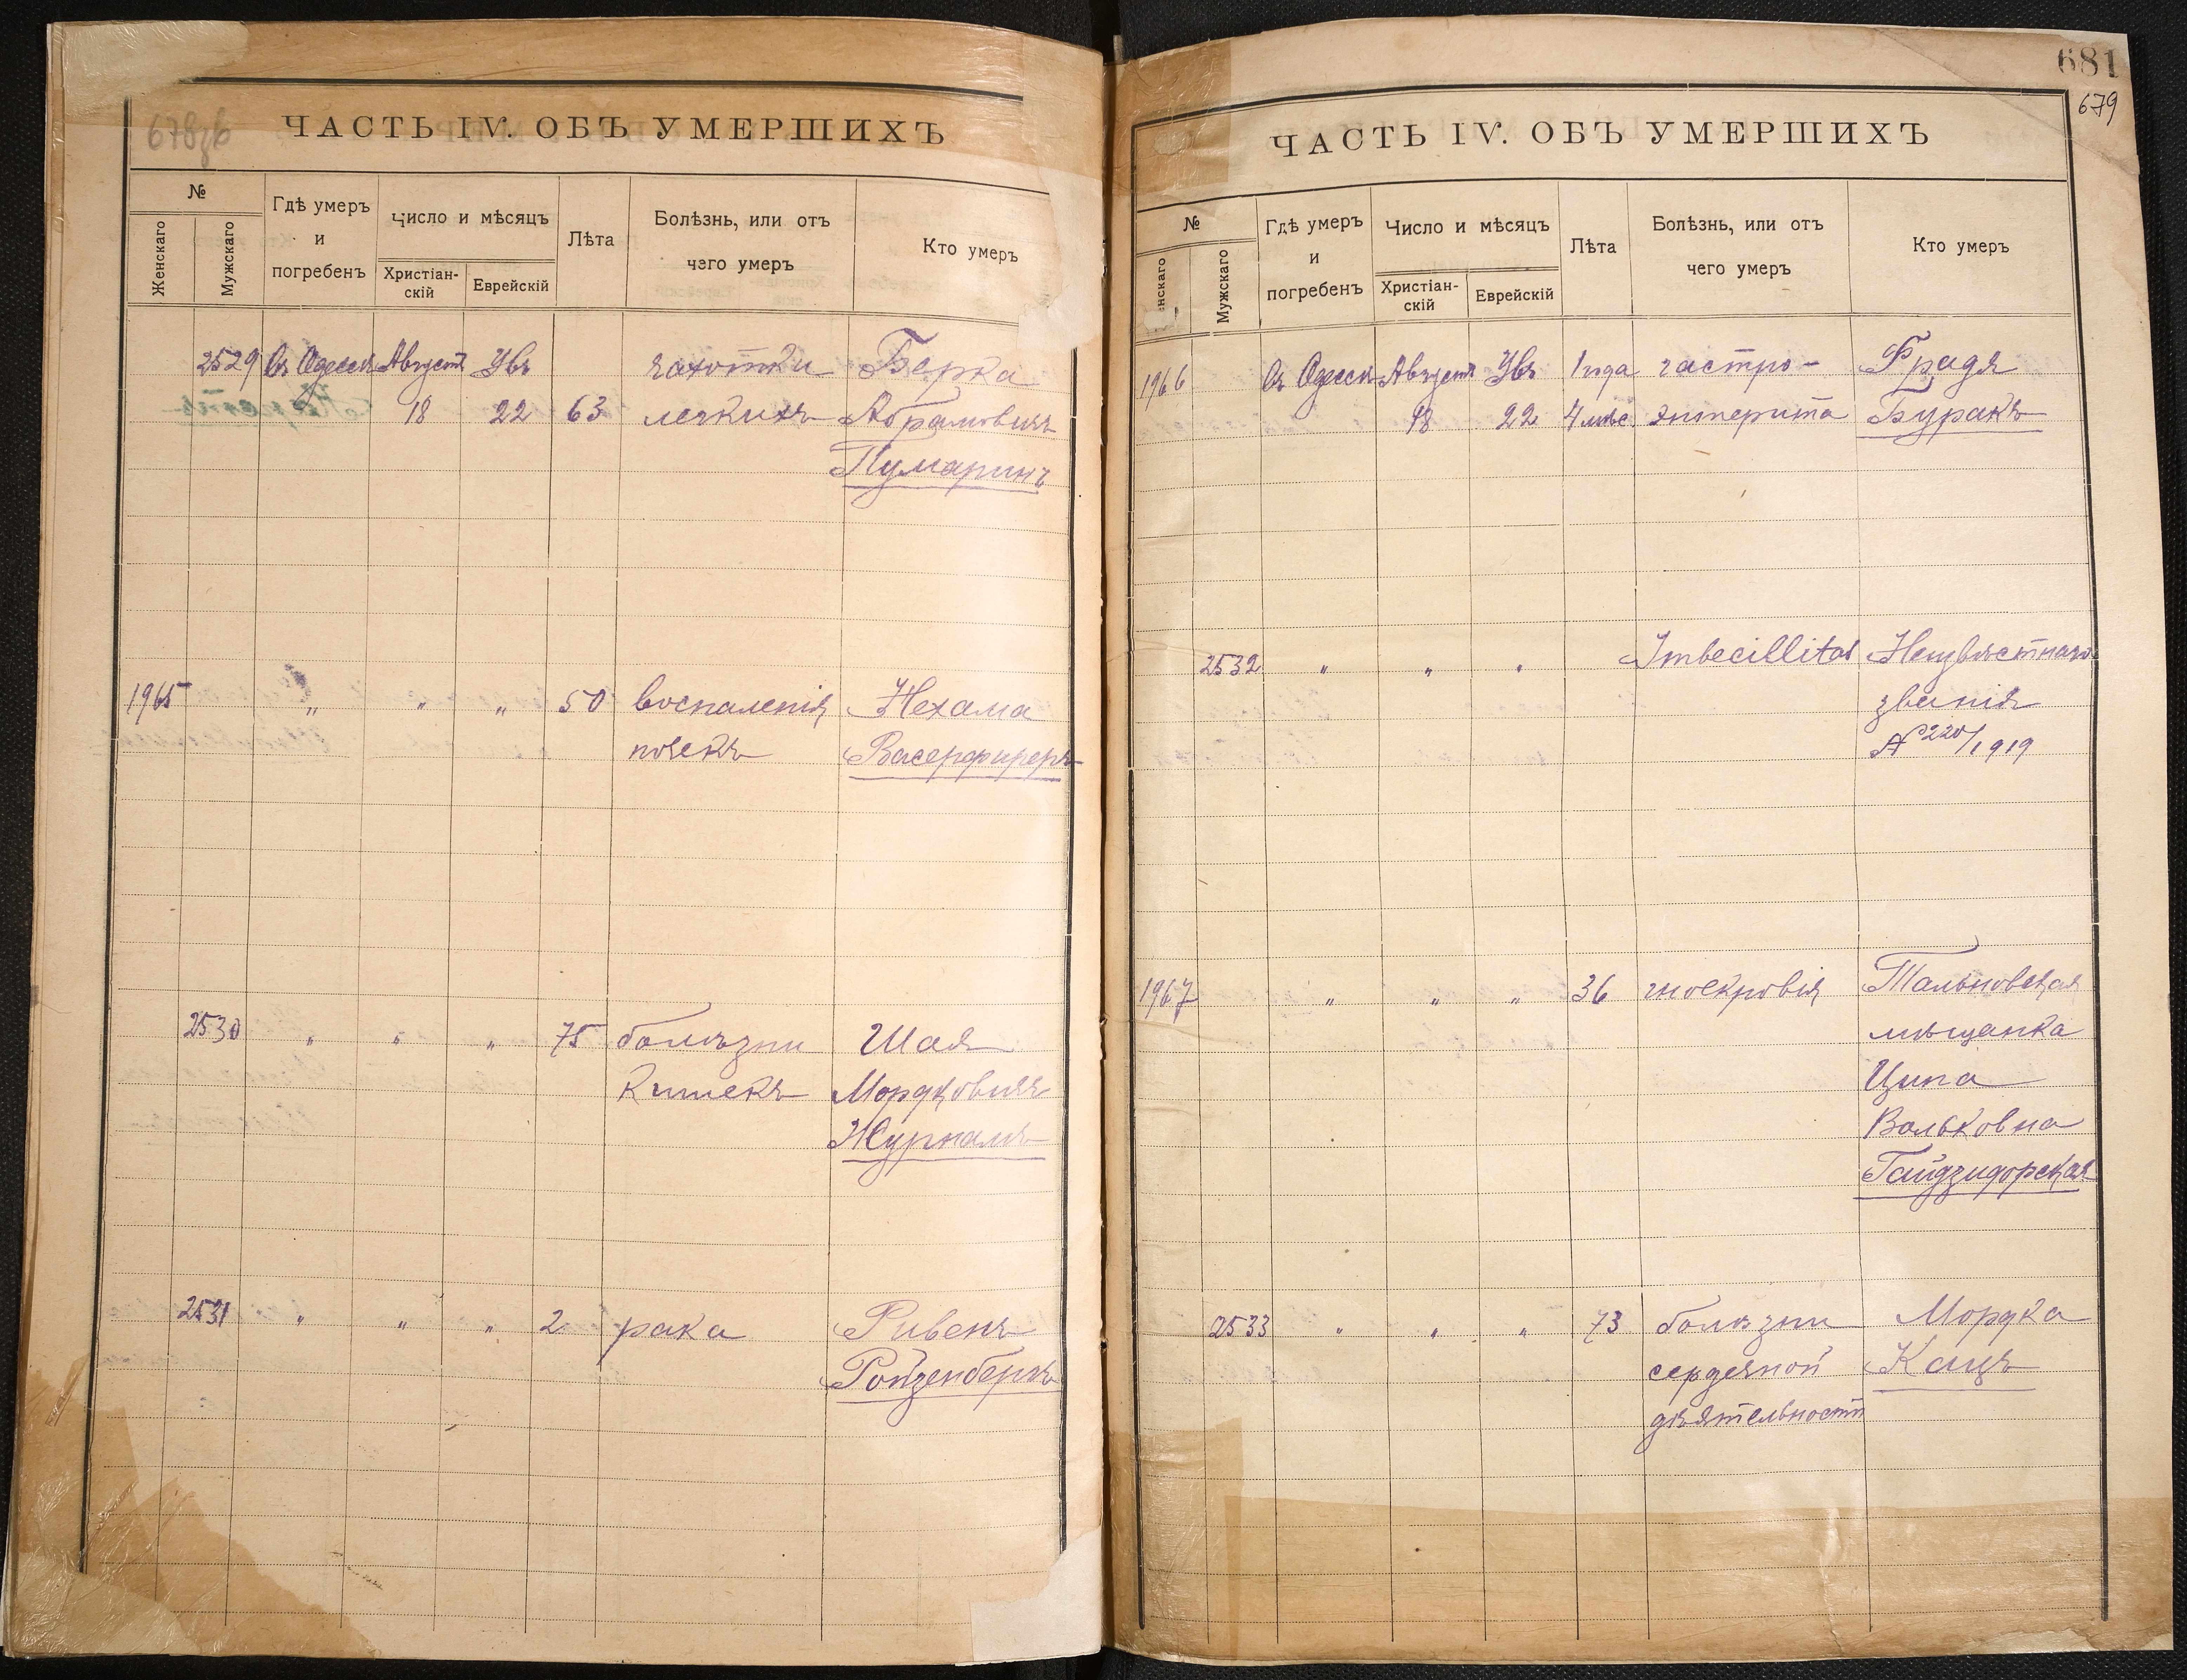 ЧАСТЬ IV. ОБЪ УМЕРШИХЪ
№
Женскаго
Мужскаго
Гдѣ умеръ
и
погребенъ
Число и мѣсяцъ
Христіан-
скій
Еврейскій
Лѣта
Болѣзнь, или отъ
чего умеръ
Кто умеръ
2529 Въ Одессѣ Августа Увъ чахотки Берка
18 22 63 легкихъ Абрамовичъ
Пумаринъ
1965 " " " 50 воспаленія Нехама
почекъ Васерфиреръ
2530 " " " 75 болѣзни Шая
кишекъ Мордковичъ
Журналъ
2531 " " " 2 рака Рувенъ
Ройзенбергъ
681
679
ЧАСТЬ IV. ОБЪ УМЕРШИХЪ
№
нскаго
Мужскаго
Гдѣ умеръ
и
погребенъ
Число и мѣсяцъ
Христіан-
скій
Еврейскій
Лѣта
Болѣзнь, или отъ
чего умеръ
Кто умеръ
1966 Въ Одессѣ Августа Увъ 1 года гастро- Фрадя
18 22 4 мѣс. энтерита Буракъ
2532 " " " Imbecillitas Неизвѣстнаго
званія
№ 220/1919
1967 " " " 36 гноекровія Тальновская
мѣщанка
Ципа
Вольковна
Гайдзидорская
2533 " " " 73 болѣзни Мордка
сердечной Кацъ
дѣятельности